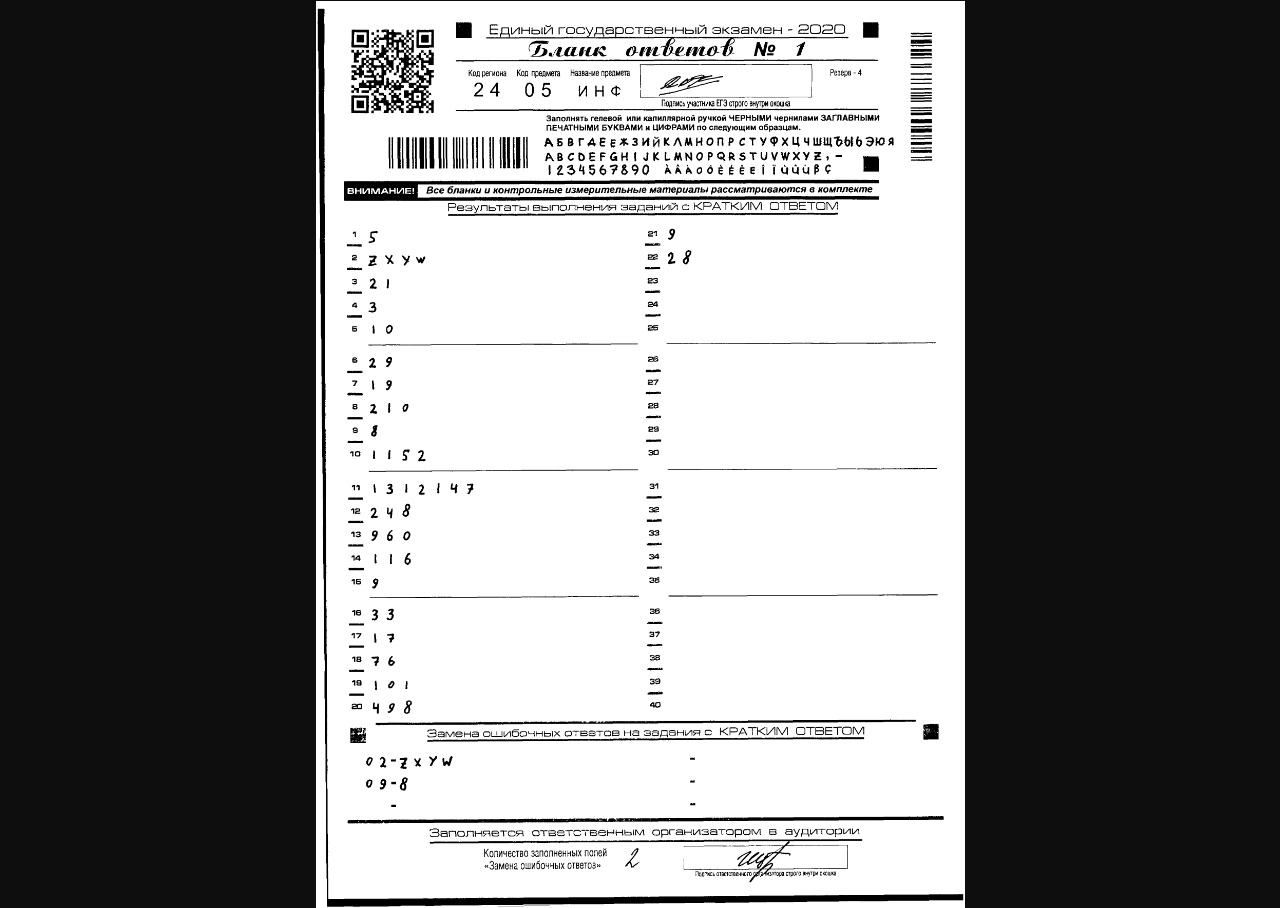 Единый государственный экзамен - 2020
Бланк ответов № 1
Код региона Код предмета Название предмета Резерв - 4
24 05 ИНФ
Подпись участника ЕГЭ строго внутри окошка
Заполнять гелевой или капиллярной ручкой ЧЕРНЫМИ чернилами ЗАГЛАВНЫМИ
ПЕЧАТНЫМИ БУКВАМИ и ЦИФРАМИ по следующим образцам.
АБВГДЕЁЖЗИЙКЛМНОПРСТУФХЦЧШЩЪЫЬЭЮЯ
ABCDEFGHIJKLMNOPQRSTUVWXYZ,-
1234567890
ВНИМАНИЕ! Все бланки и контрольные измерительные материалы рассматриваются в комплекте
Результаты выполнения заданий с КРАТКИМ ОТВЕТОМ
1 5
2 ZXYW
3 21
4 3
5 10
6 29
7 19
8 210
9 8
10 1152
11 1312147
12 248
13 960
14 116
15 9
16 33
17 17
18 76
19 101
20 498
21 9
22 28
23
24
25
26
27
28
29
30
31
32
33
34
35
36
37
38
39
40
Замена ошибочных ответов на задания с КРАТКИМ ОТВЕТОМ
02-ZXYW -
09-8 -
- -
Заполняется ответственным организатором в аудитории
Количество заполненных полей
«Замена ошибочных ответов» 2
Подпись ответственного организатора строго внутри окошка